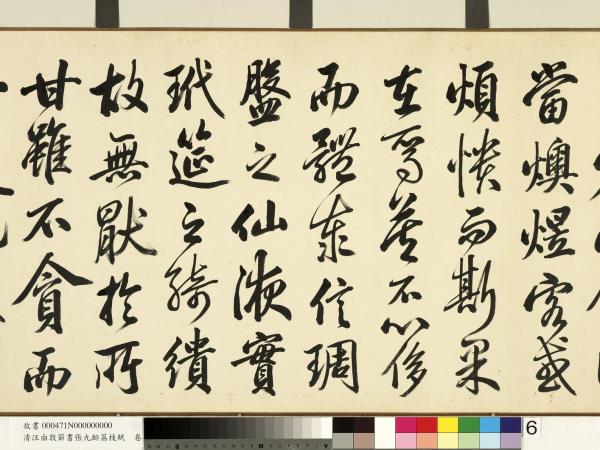 當燠煜客或
煩憒而斯果
在焉莫不心侈
而體泰信琱
盤之仙液實
玳筵之綺繢
故無猒於所
甘雖不貪而
故書 000471N000000000
清汪由敦節書張九齡荔枝賦 卷
6